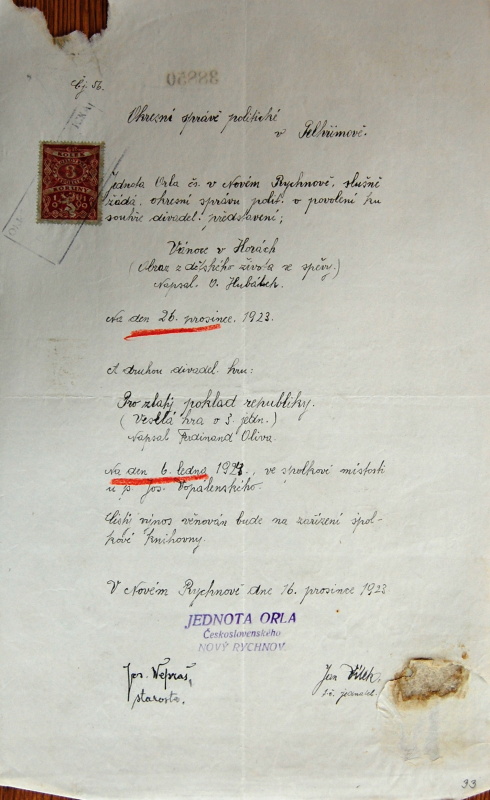 Čj. 56.
38850
Okresní správě politické
v Pelhřimově.
KOLEK
3
KORUNY
1919
Jednota Orla čs. v Novém Rychnově, slušně
žádá, okresní správu polit. o povolení ku
souhře divadel. představení;
Vánoce v Horách
(Obraz z dětského života se zpěvy.)
Napsal V. Hubálek.
Na den 26. prosince. 1923.
A druhou divadel. hru:
Pro zlatý poklad republiky.
(Veselá hra o 3. jedn.)
Napsal Ferdinand Oliva.
Na den 6. ledna 1924., ve spolkové místosti
u p. Jos. Vopálenského.
Čistý výnos věnován bude na zařízení spol-
kové knihovny.
V Novém Rychnově dne 16. prosince 1923
JEDNOTA ORLA
Československého
NOVÝ RYCHNOV.
Jos. Nepraš, Jan Vítek.
starosta. t.č. jednatel.
33